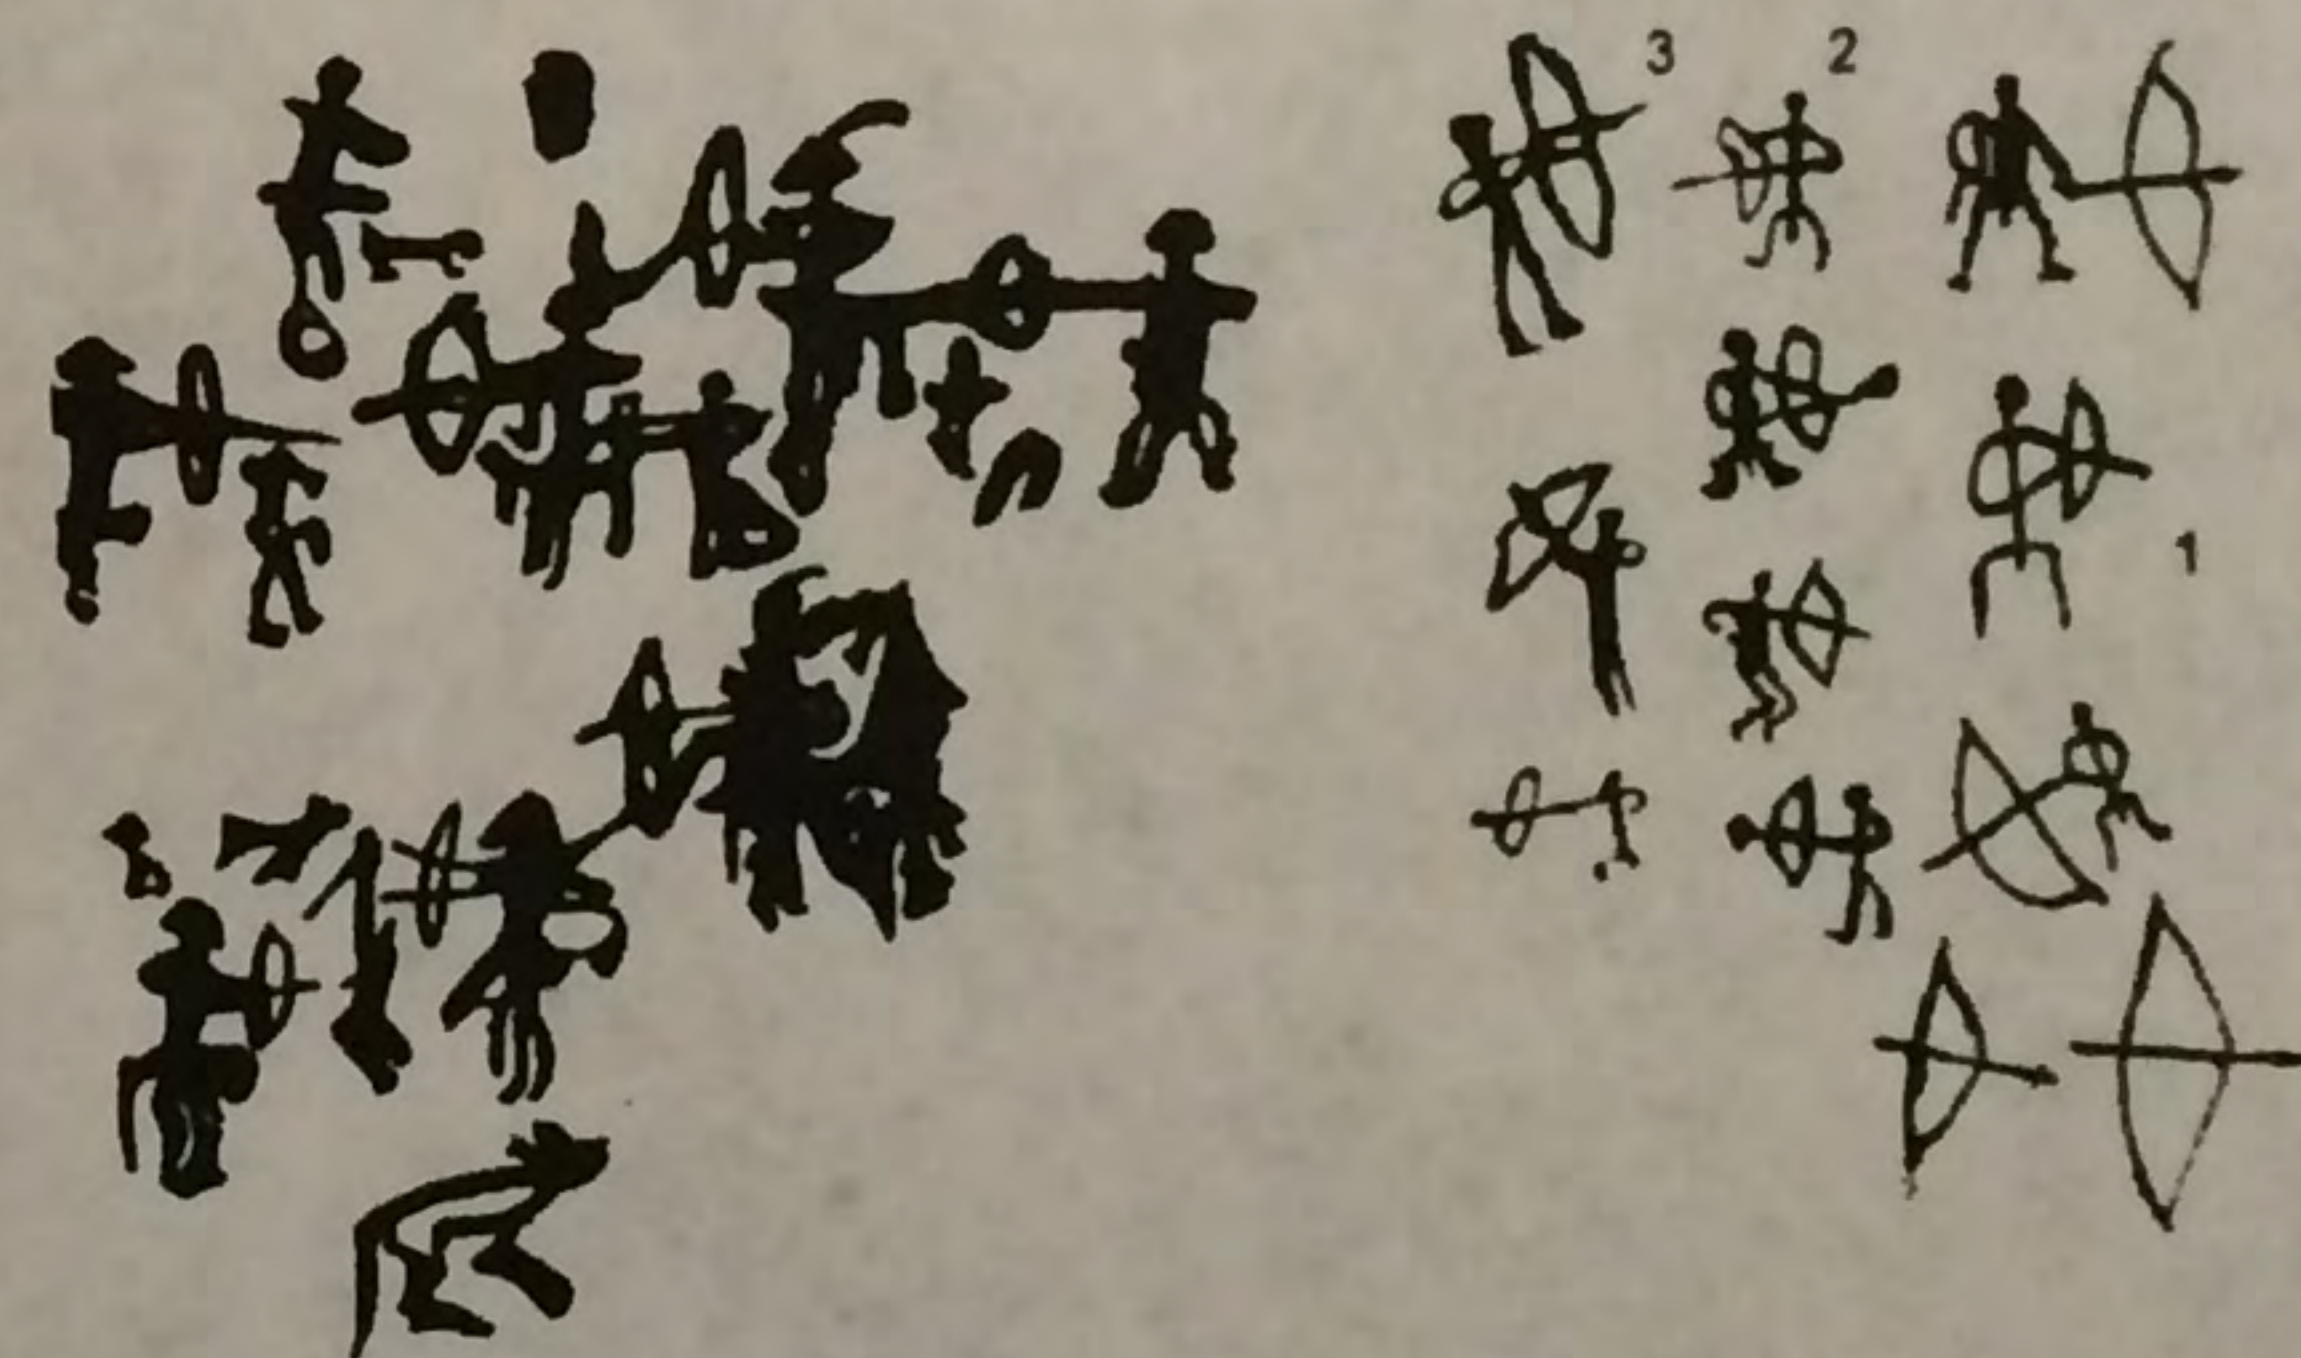 3 2
1